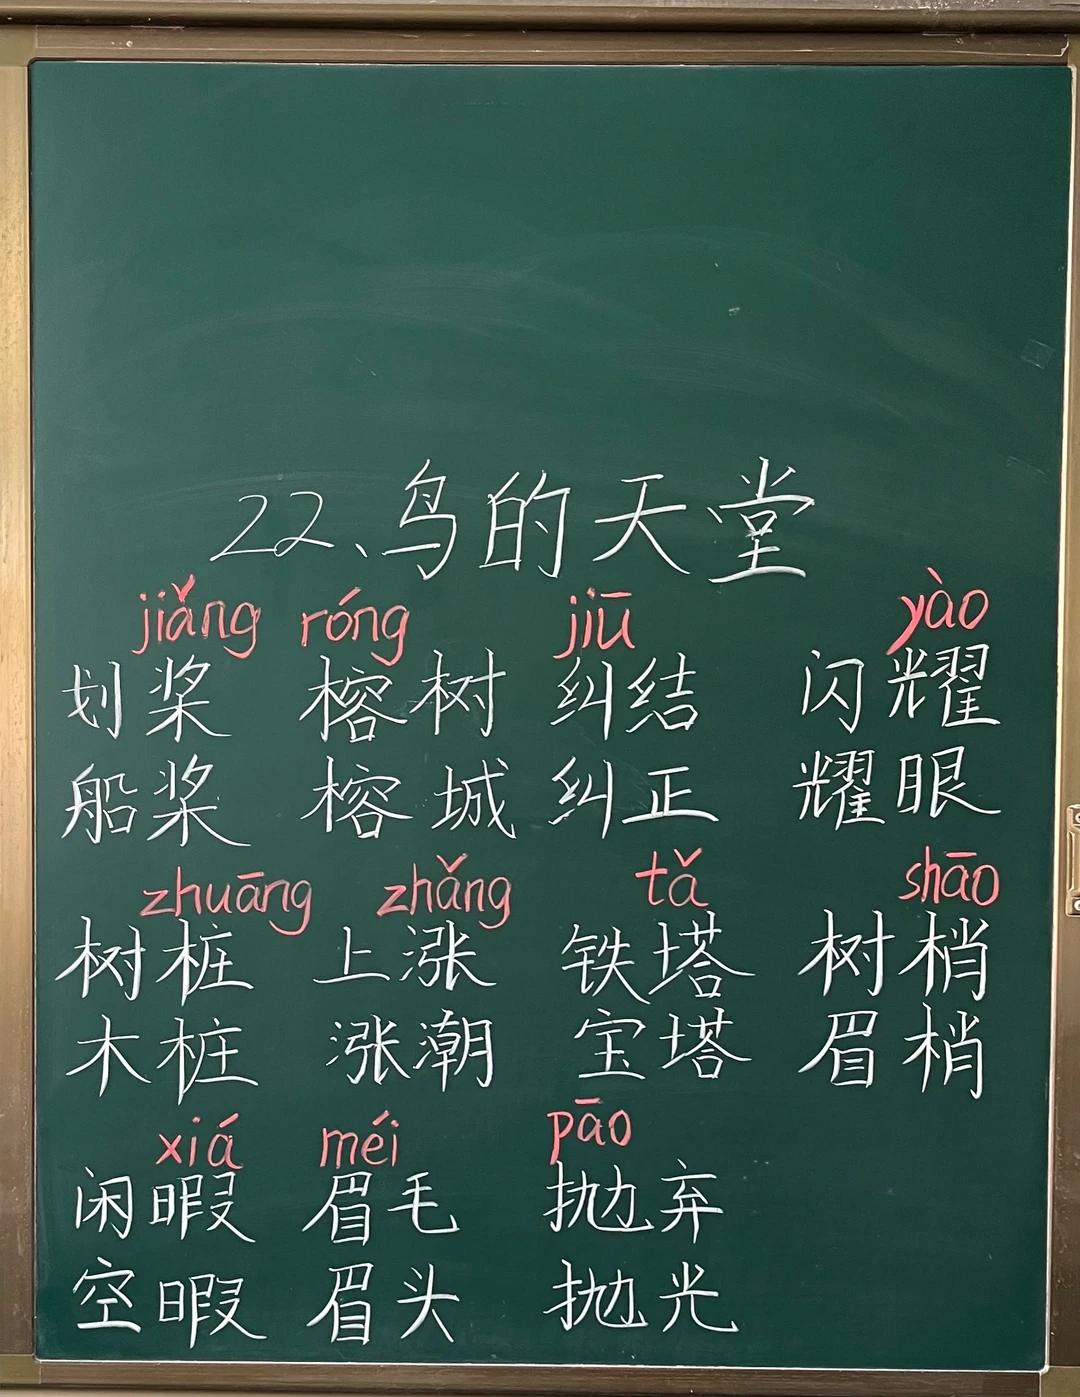 22、鸟的天堂
jiǎng róng jiū yào
划桨 榕树 纠结 闪耀
船桨 榕城 纠正 耀眼
zhuāng zhǎng tǎ shāo
树桩 上涨 铁塔 树梢
木桩 涨潮 宝塔 眉梢
xiá méi pāo
闲暇 眉毛 抛弃
空暇 眉头 抛光